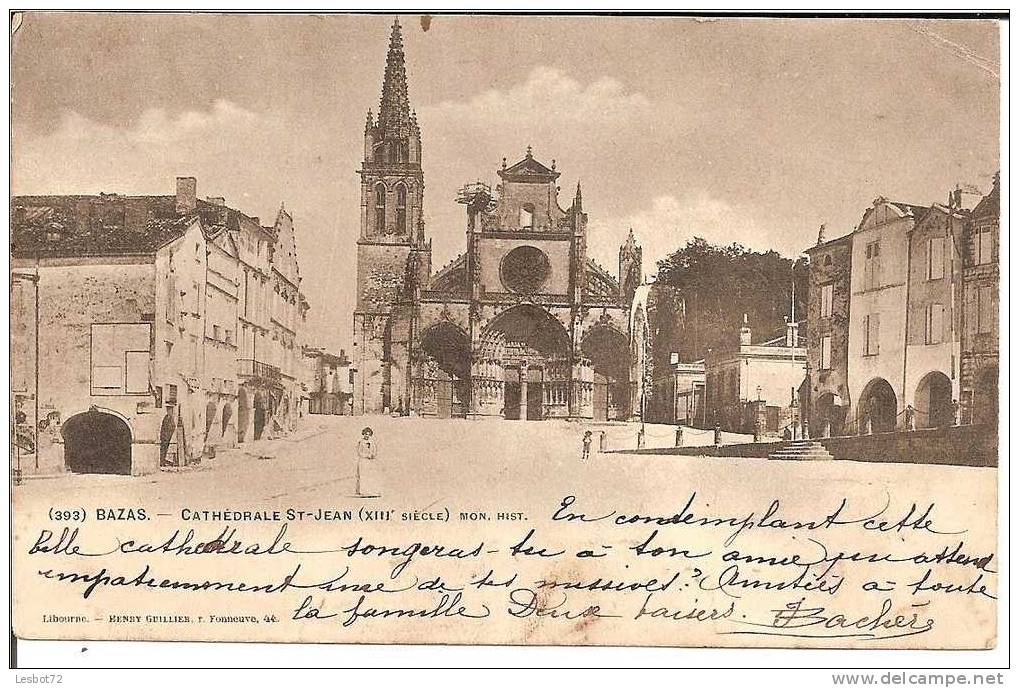 (393) BAZAS. — CATHÉDRALE ST-JEAN (XIIIe SIÈCLE) MON. HIST.
En contemplant cette
belle cathédrale songeras-tu à ton amie qui attend
impatiemment une de tes missives? Amitiés à toute
la famille Deux baisers.
Libourne. — HENRY GUILLIER, r. Fonneuve, 44.
Lesbot72
www.delcampe.net